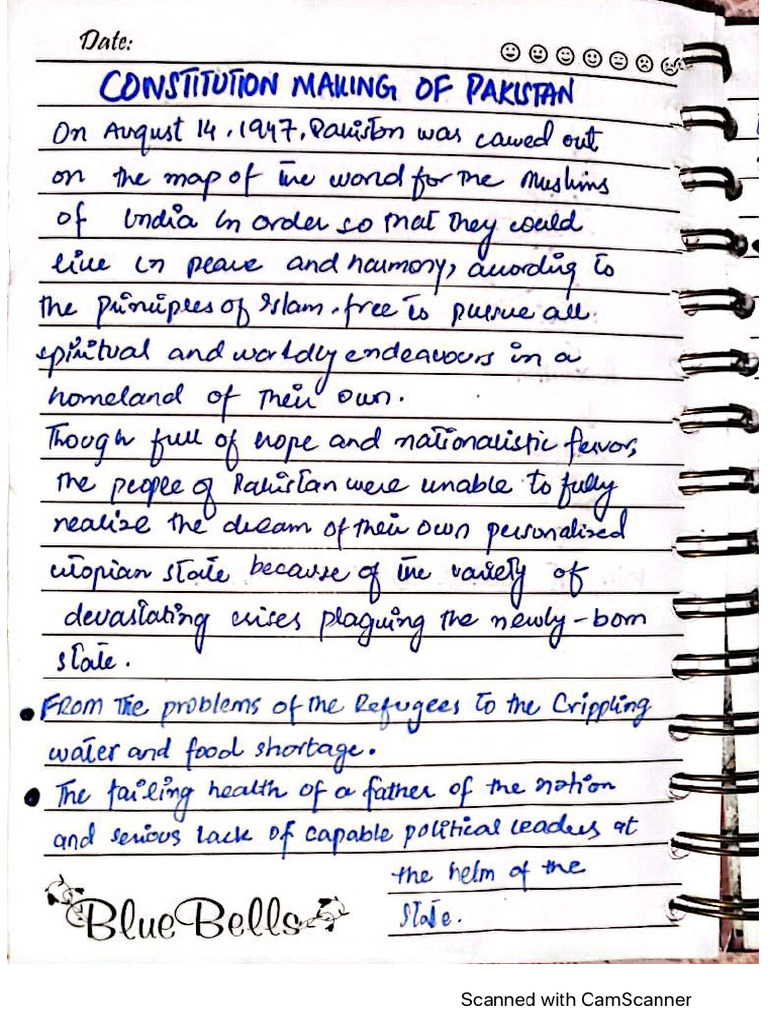 Date:
CONSTITUTION MAKING OF PAKISTAN
On August 14, 1947, Pakistan was carved out
on the map of the world for the Muslims
of India in order so that they could
live in peace and harmony, according to
the principles of Islam. free to pursue all
spiritual and worldly endeavours in a
homeland of their own.
Though full of hope and nationalistic fervor,
the people of Pakistan were unable to fully
realize the dream of their own personalized
utopian state because of the variety of
devastating crises plaguing the newly-born
state.
• FROM The problems of the Refugees to the Crippling
water and food shortage.
• The failing health of a father of the nation
and serious lack of capable political leaders at
the helm of the
state.
BlueBells
Scanned with CamScanner